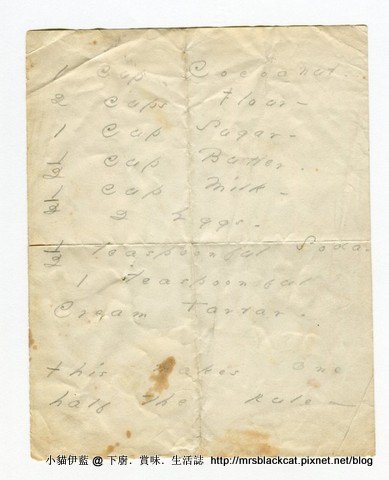 1 Cup Cocoanut.
2 Cups Flour-
1 Cup Sugar-
1/2 Cup Butter.
1/2 Cup Milk-
2 Eggs-
1/2 teaspoonful Soda-
1 teaspoonful
Cream Tartar-
this makes one
half the Rule-
小貓伊藍 @ 下廚．賞味．生活誌 http://mrsblackcat.pixnet.net/blog